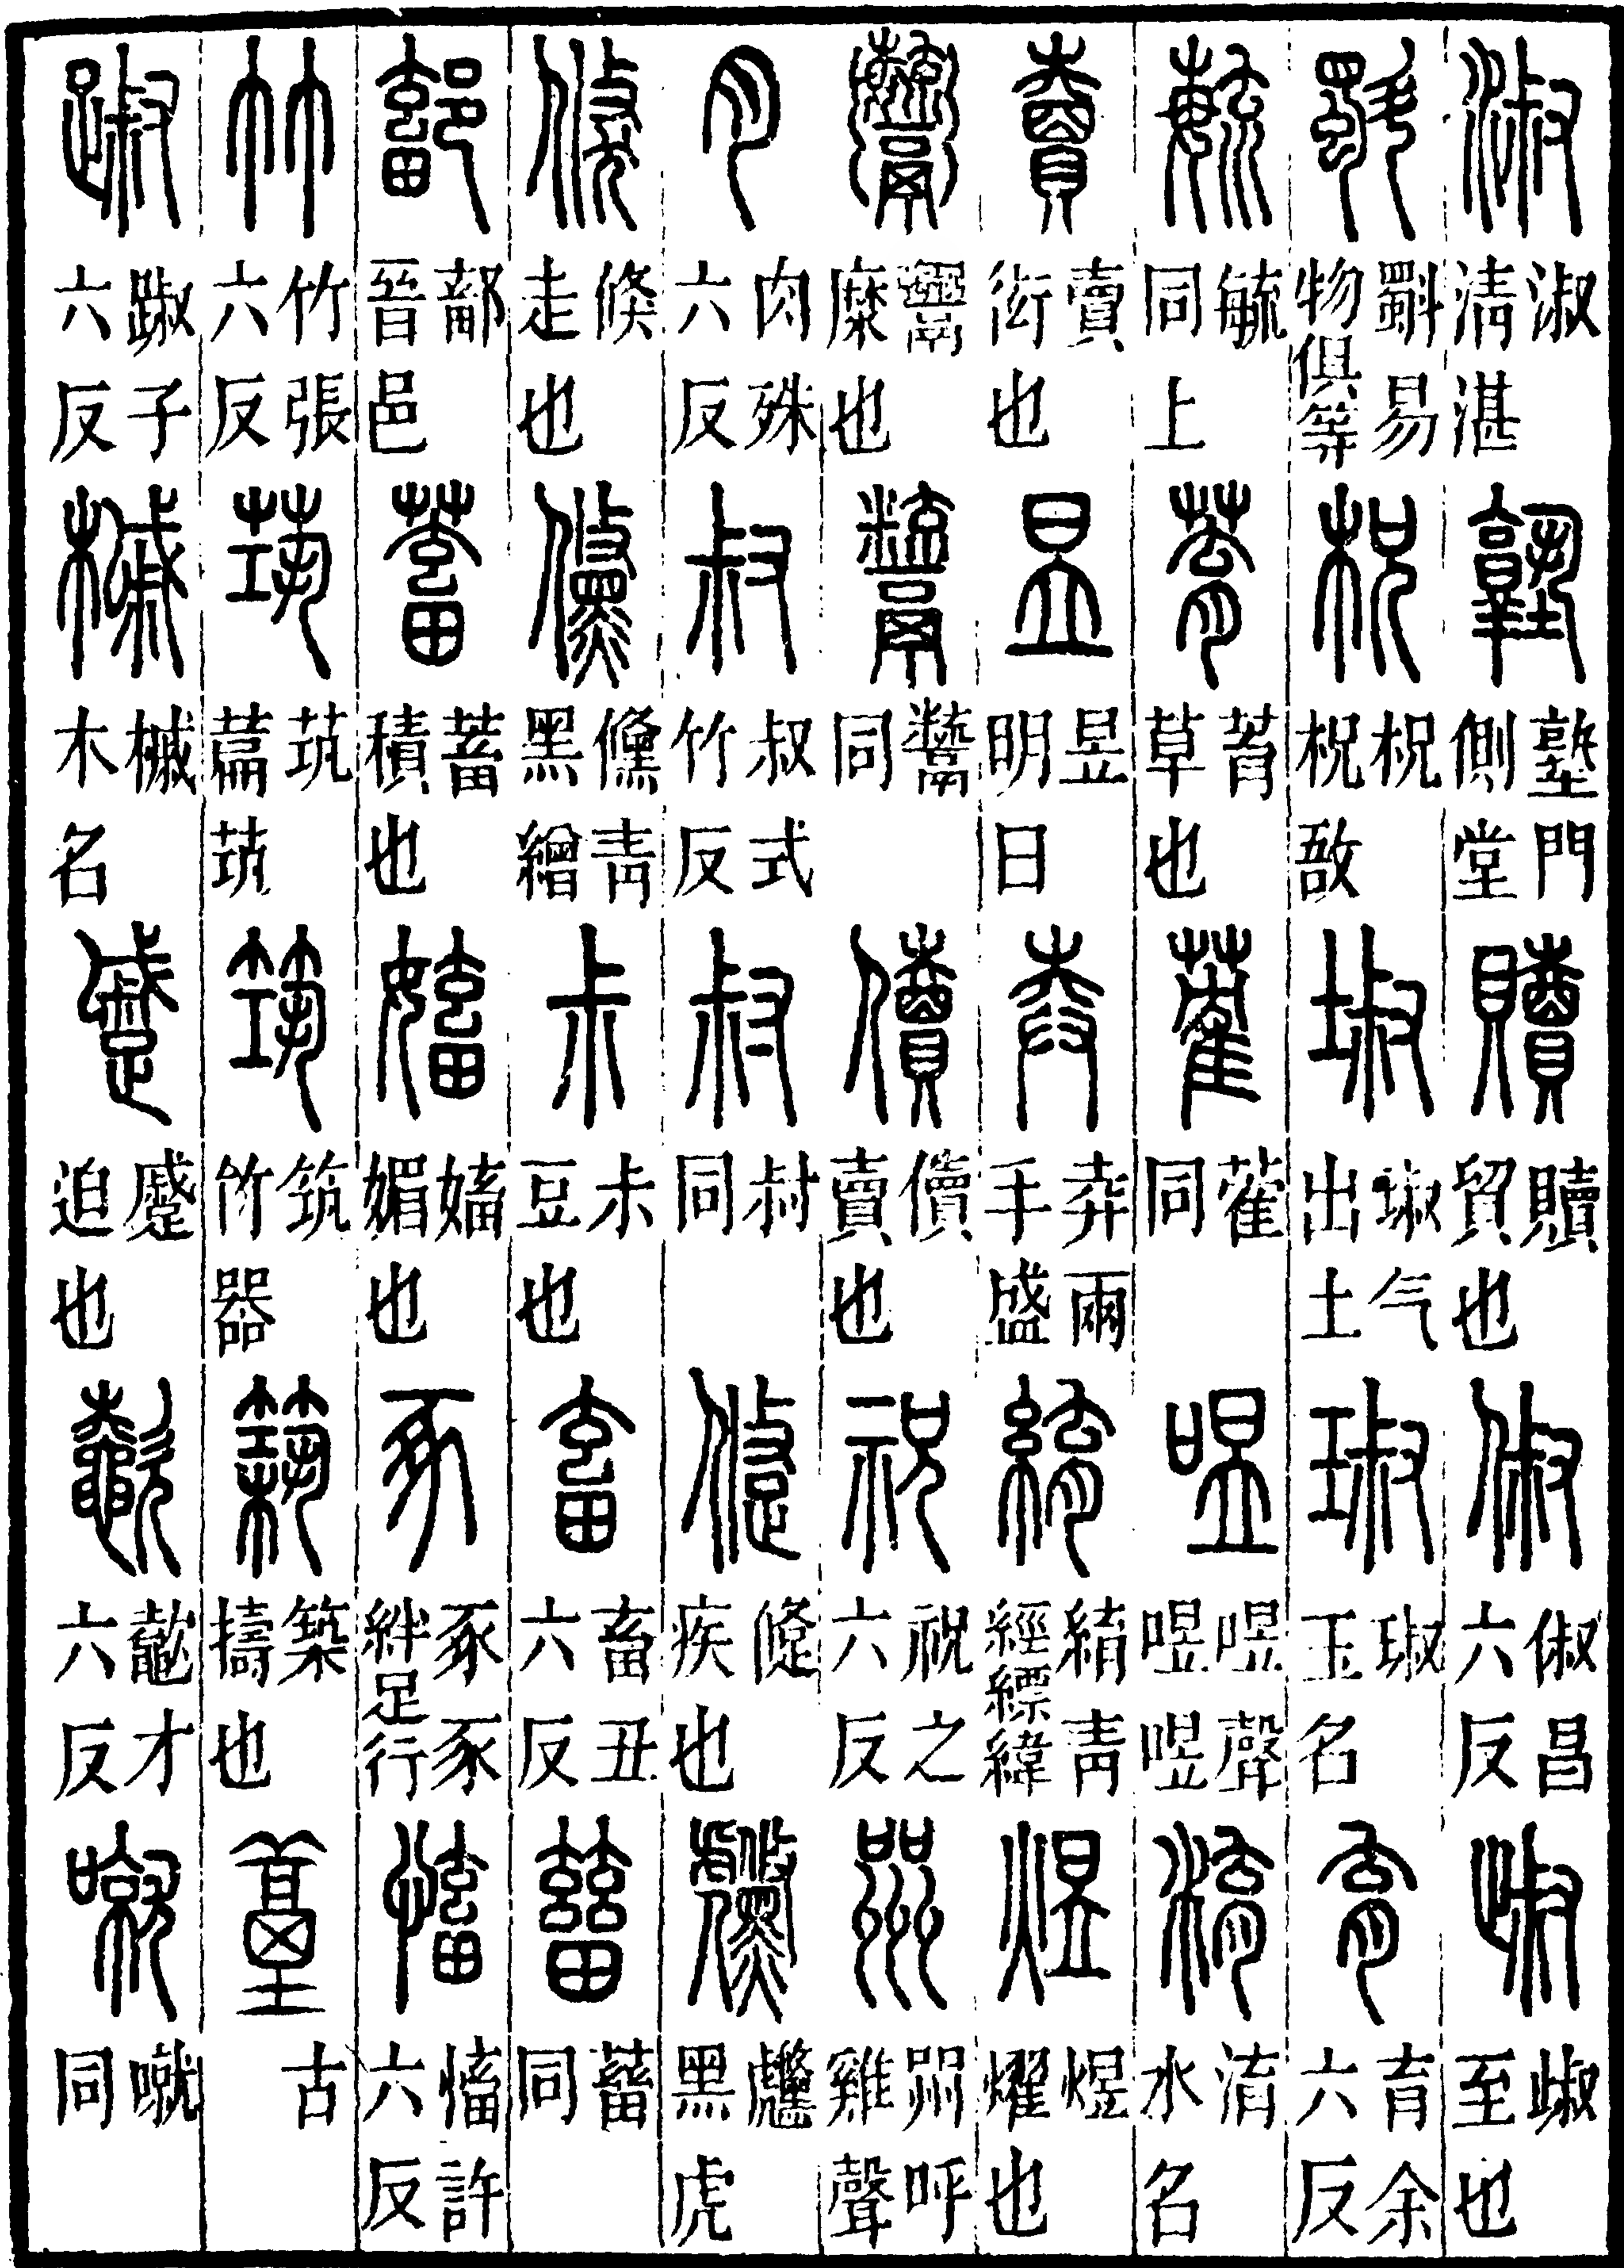 淑 淑清湛 塾 塾門側堂 贖 贖貿也 俶 俶昌六反 至也
斣 斣易物俱等 柷 柷柷敔 埱 埱气出土 琡 琡玉名 育 育余六反
毓 毓同上 草也 同 喅 喅聲喅喅 淯 淯水名
賣 賣衒也 昱 昱明日 兩手盛 青經縹緯 煜 煜燿也
鬻 鬻糜也 同 儥 儥賣也 祝 祝之六反 喌 喌呼雞聲
肉 肉殊六反 叔 叔式竹反 同 疾也 虪 虪黑虎
倏 倏走也 儵 儵青黑繒 尗 尗豆也 畜 畜丑六反 同
鄐 鄐晉邑 蓄 蓄積也 媚也 豖 豖豖豖絆足行 慉 慉許六反
竹 竹張六反 茿 茿萹茿 筑 筑竹器 築 築擣也 古
踧 踧子六反 槭 槭木名 蹙 蹙迫也 才六反 噈 噈同